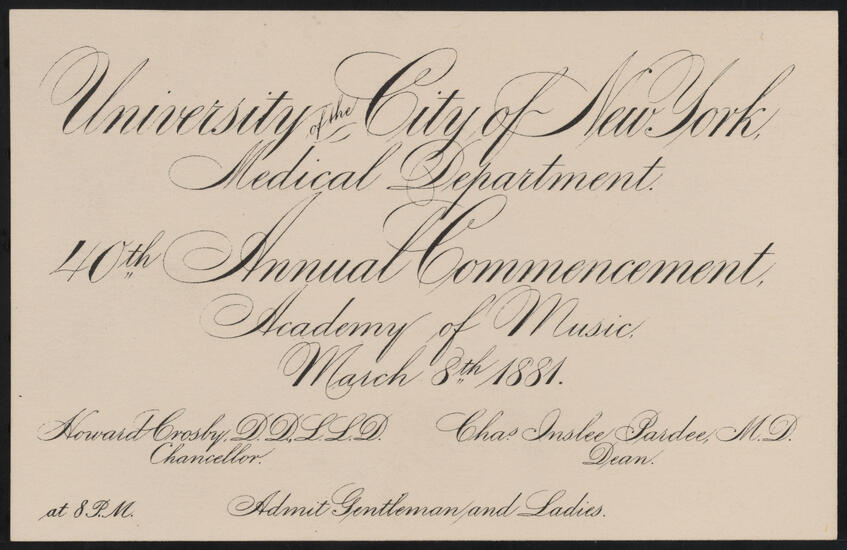 University of the City of New York,
Medical Department.
40th Annual Commencement,
Academy of Music,
March 8th 1881.
Howard Crosby, D.D, L L. D. Chas Inslee Pardee, M. D.
Chancellor. Dean.
at 8 P.M. Admit Gentleman and Ladies.